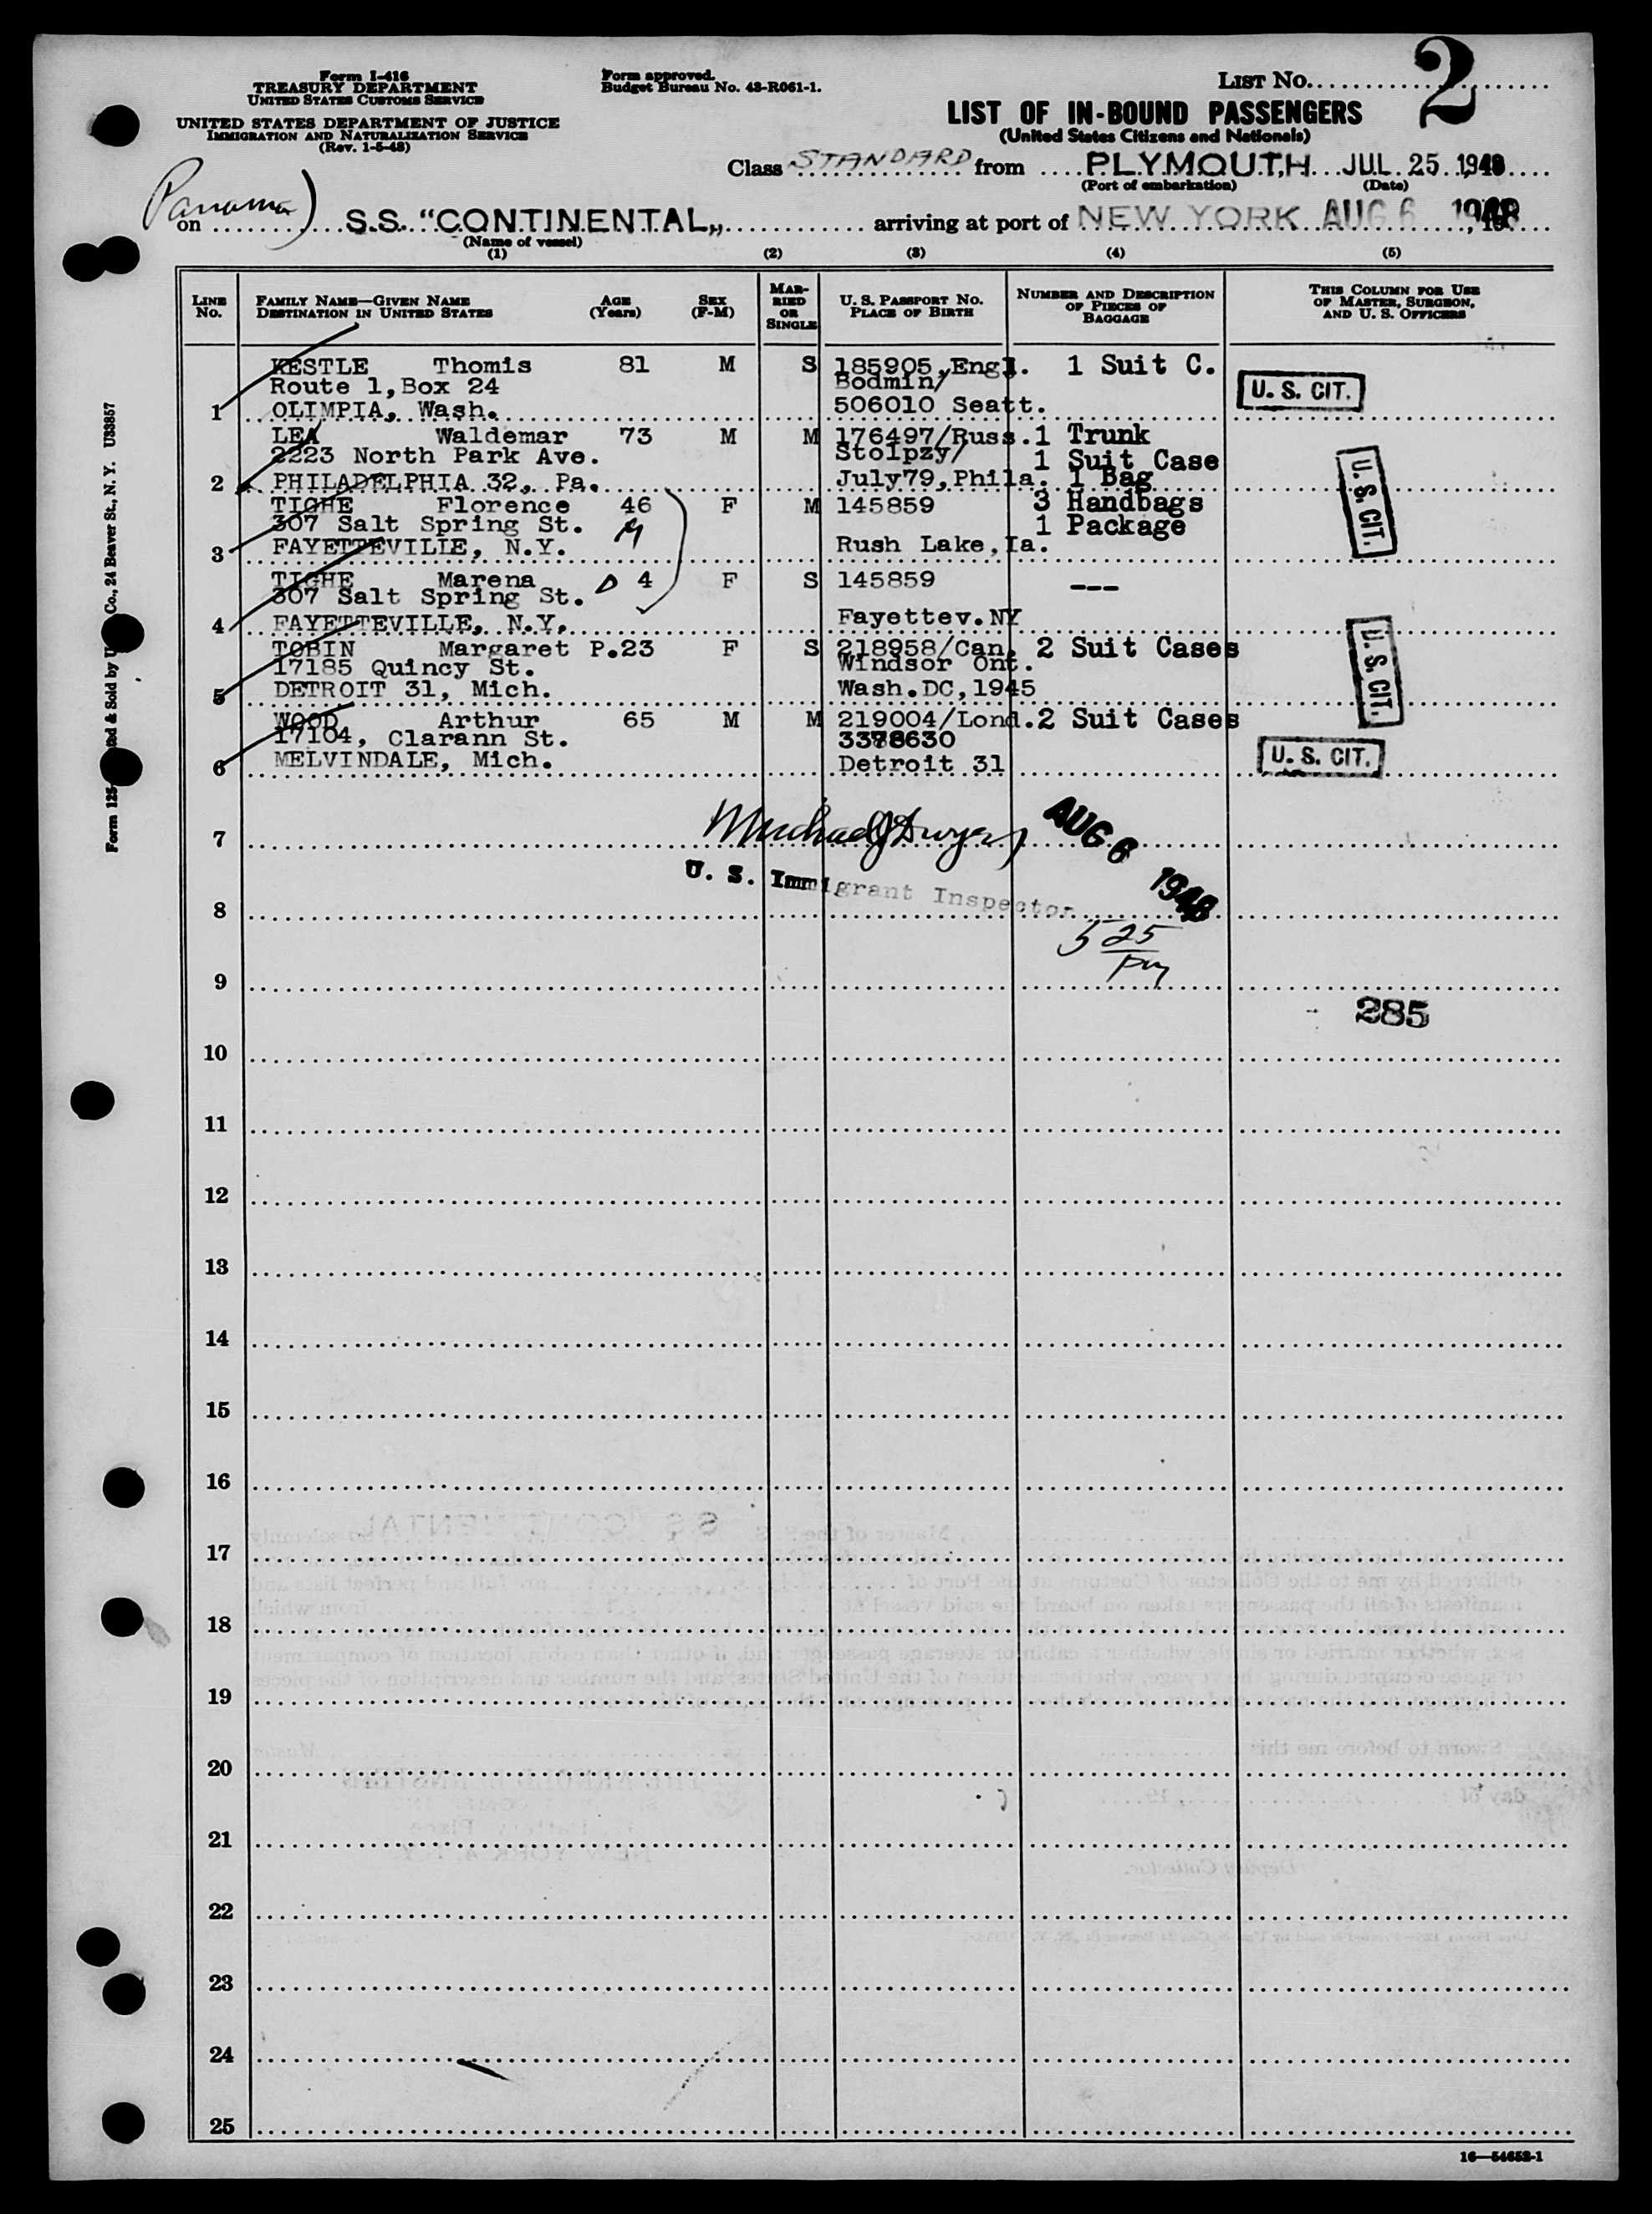 Form I-416
TREASURY DEPARTMENT
UNITED STATES CUSTOMS SERVICE
UNITED STATES DEPARTMENT OF JUSTICE
IMMIGRATION AND NATURALIZATION SERVICE
(Rev. 1-5-48)
Form approved.
Budget Bureau No. 43-R061-1.
LIST NO. 2
LIST OF IN-BOUND PASSENGERS
(United States Citizens and Nationals)
Class STANDARD from PLYMOUTH JUL 25 1948
(Port of embarkation) (Date)
Panama)
on S.S. "CONTINENTAL" arriving at port of NEW YORK AUG 6 1948
(Name of vessel)
(1) (2) (3) (4) (5)
LINE No. FAMILY NAME—GIVEN NAME DESTINATION IN UNITED STATES AGE (Years) SEX (F-M) MARRIED OR SINGLE U. S. PASSPORT NO. PLACE OF BIRTH NUMBER AND DESCRIPTION OF PIECES OF BAGGAGE THIS COLUMN FOR USE OF MASTER, SURGEON, AND U. S. OFFICERS
KESTLE Thomis 81 M S 185905,Engl. 1 Suit C.
Route 1,Box 24 Bodmin/ U. S. CIT.
1 OLIMPIA, Wash. 506010 Seatt.
LEA Waldemar 73 M M 176497/Russ. 1 Trunk
2223 North Park Ave. Stolpzy/ 1 Suit Case
2 PHILADELPHIA 32, Pa. July79,Phila. 1 Bag U. S. CIT.
TIGHE Florence 46 F M 145859 3 Handbags
307 Salt Spring St. 1 Package
3 FAYETTEVILLE, N.Y. Rush Lake,Ia.
TIGHE Marena 4 F S 145859 ---
307 Salt Spring St.
4 FAYETTEVILLE, N.Y. Fayettev.NY
TOBIN Margaret P.23 F S 218958/Can. 2 Suit Cases
17185 Quincy St. Windsor Ont. U. S. CIT.
5 DETROIT 31, Mich. Wash.DC,1945
WOOD Arthur 65 M M 219004/Lond. 2 Suit Cases
17104, Clarann St. 3378630
6 MELVINDALE, Mich. Detroit 31 U. S. CIT.
7 AUG 6 1948
U. S. Immigrant Inspector
8
5 25
pm
9
285
10
11
12
13
14
15
16
17
18
19
20
21
22
23
24
25
16—54652-1